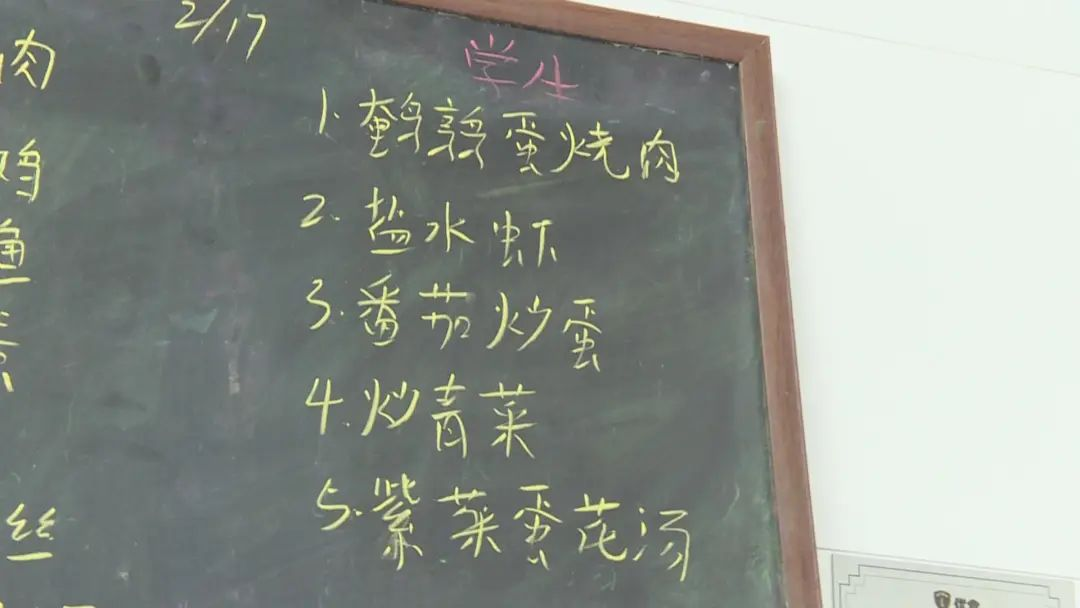 2/17
学生
1.鹌鹑蛋烧肉
2.盐水虾
3.番茄炒蛋
4.炒青菜
5.紫菜蛋花汤
肉
鸡
丝